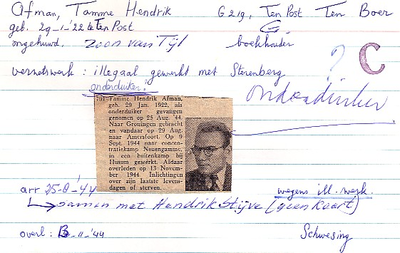 Afman, Tamme Hendrik G 219, Ten Post Ten Boer
geb. 29-1-'22 te Ten Post
ongehuwd. zoon van Tijl boekhouder
verzetswerk: illegaal gewerkt met Sterenberg
onderduiker! ? C
onderduiker
Tamme Hendrik Afman,
geb. 29 Jan. 1922, als
onderduiker gevangen
genomen op 25 Aug. '44.
Naar Groningen gebracht
en vandaar op 29 Aug.
naar Amersfoort. Op 9
Sept. 1944 naar concen-
tratiekamp Neuengamme,
in een buitenkamp bij
Husum gewerkt. Aldaar
overleden op 13 November
1944. Inlichtingen
over zijn laatste levens-
dagen of sterven.
arr 25-8-'44 wegens ill. werk
samen met Hendrik Stijve (geen kaart)
overl. 13-11-'44 Schwesing